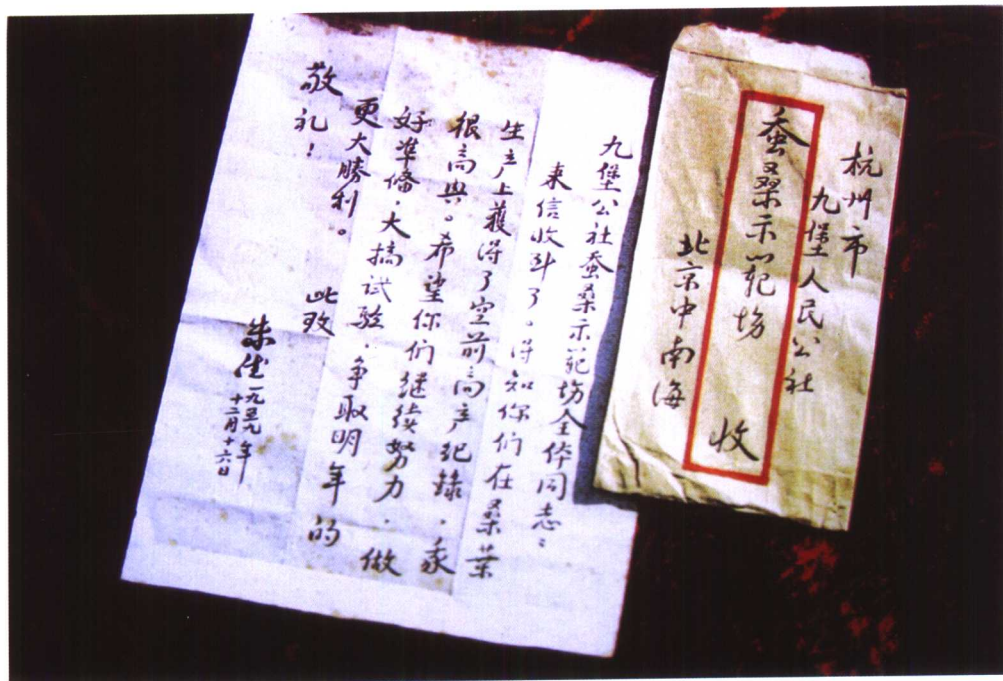 杭州市
九堡人民公社
蚕桑示范场 收
北京中南海
九堡公社蚕桑示范场全体同志：
来信收到了。得知你们在桑葉
生产上獲得了空前高产纪錄，我
很高興。希望你们继续努力，做
好準備，大搞试验，争取明年的
更大勝利。 此致
敬礼！
朱德 一九五九年
十二月十六日